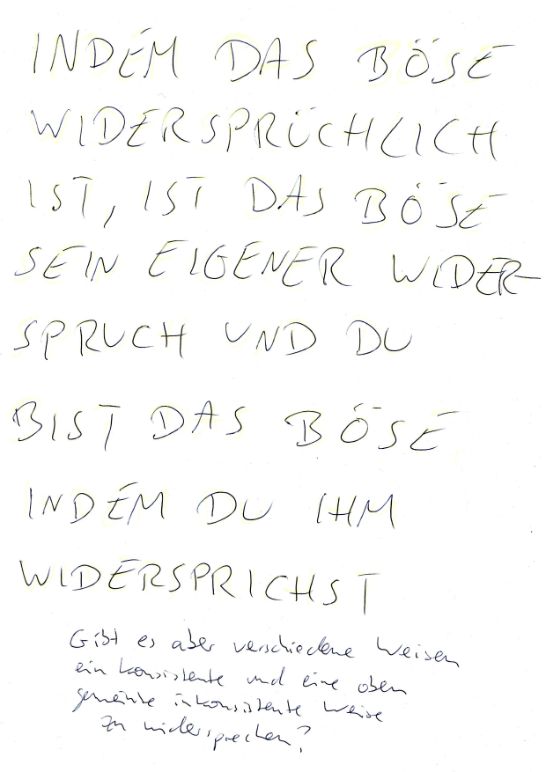 INDEM DAS BÖSE
WIDERSPRÜCHLICH
IST, IST DAS BÖSE
SEIN EIGENER WIDER-
SPRUCH UND DU
BIST DAS BÖSE
INDEM DU IHM
WIDERSPRICHST
Gibt es aber verschiedene Weisen
ein konsistente und eine oben
gemeinte inkonsistente Weise
zu widersprechen?